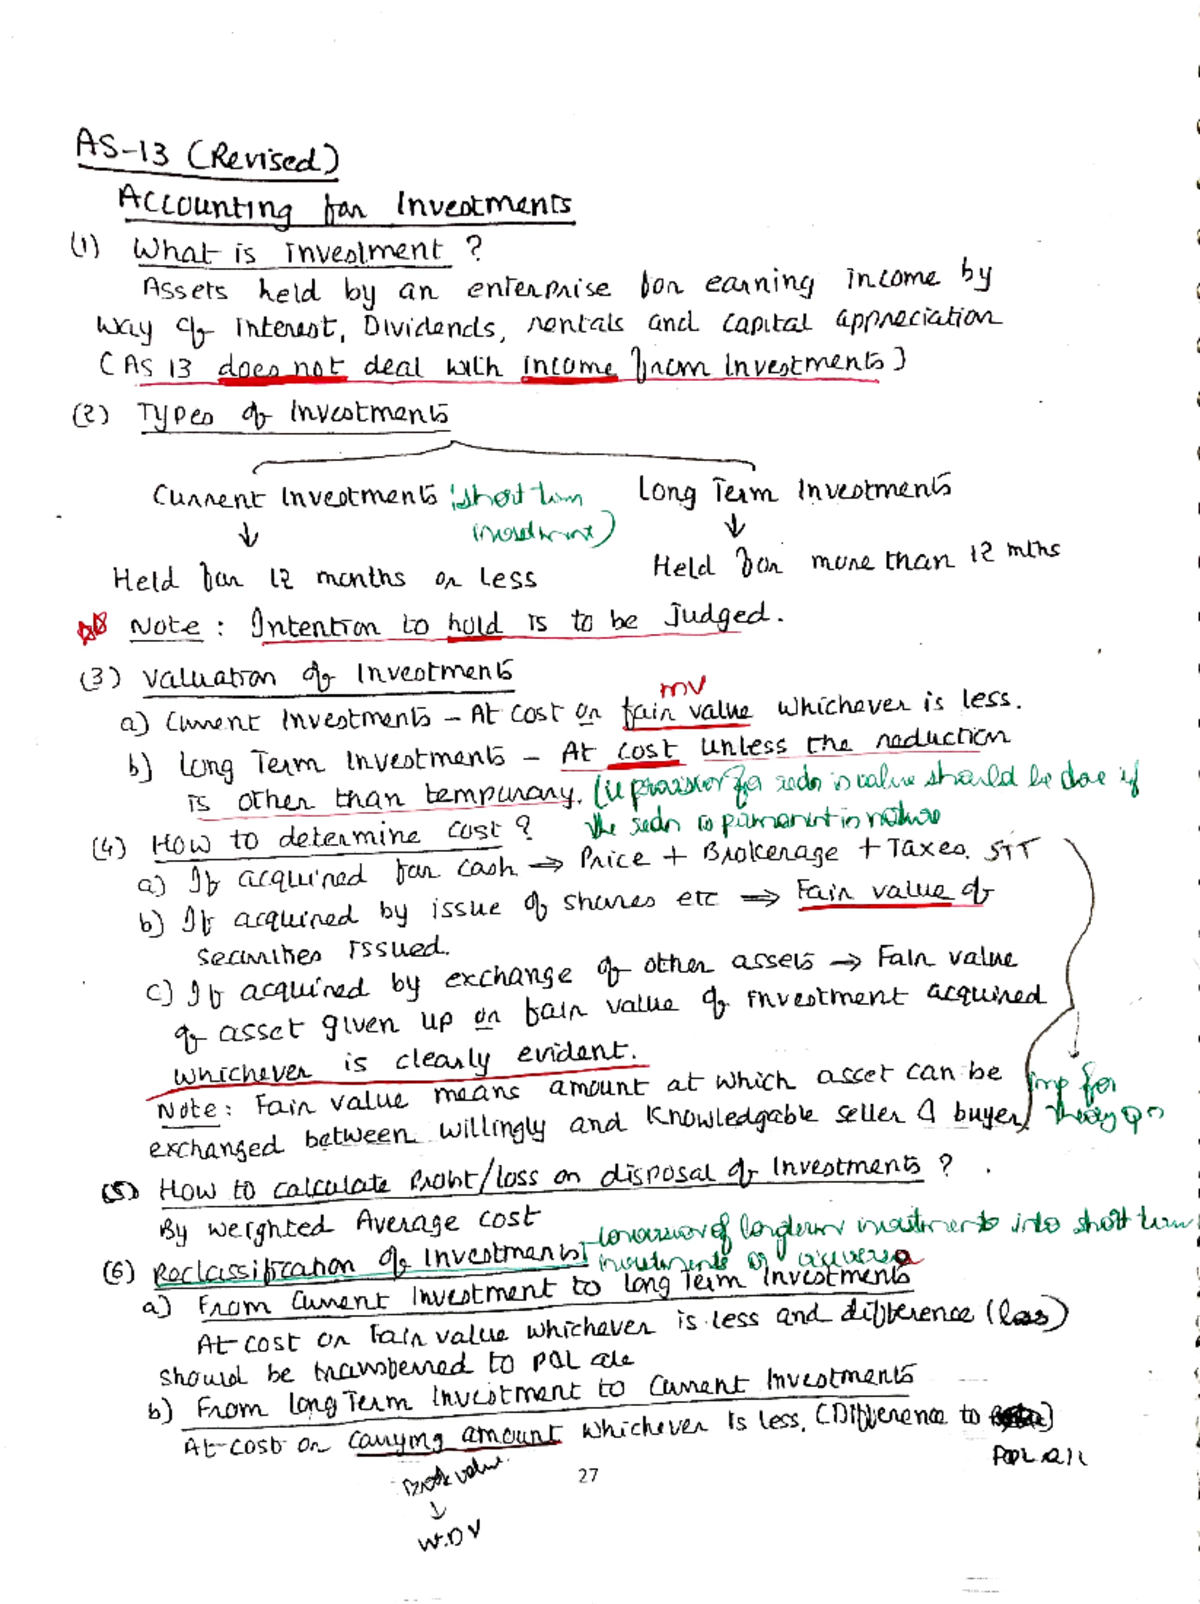 AS-13 (Revised)
Accounting for Investments
(1) What is investment ?
Assets held by an enterprise for earning income by
way of interest, Dividends, rentals and capital appreciation
(AS 13 does not deal with income from Investments)
(2) Types of Investments
Current Investments (short term Long Term Investments
investment)
Held for 12 months or less Held for more than 12 mths
Note : Intention to hold is to be Judged.
(3) Valuation of Investments
mv
a) Current Investments – At cost or fair value whichever is less.
b) Long Term Investments – At cost unless the reduction
is other than temporary. (ie provision for redn in value should be done if
the redn is permanent in nature
(4) How to determine cost ?
a) If acquired for cash ⇒ Price + Brokerage + Taxes. STT
b) If acquired by issue of shares etc ⇒ Fair value of
securities issued.
c) If acquired by exchange of other assets → Fair value
of asset given up or fair value of investment acquired
whichever is clearly evident.
Note: Fair value means amount at which asset can be Imp for
exchanged between willingly and Knowledgable seller & buyer theory qn
(5) How to calculate Profit/loss on disposal of Investments ?
By weighted Average cost
(6) Reclassification of Investments - conversion of long term investments into short term
investments or
a) From Current Investment to Long Term Investments
At cost or Fair value whichever is less and difference (loss)
should be transferred to P&L
b) From Long Term Investment to Current Investments
At cost or carrying amount whichever is less. (Difference to
P&L a/c
Book value
27
↓
W.D.V